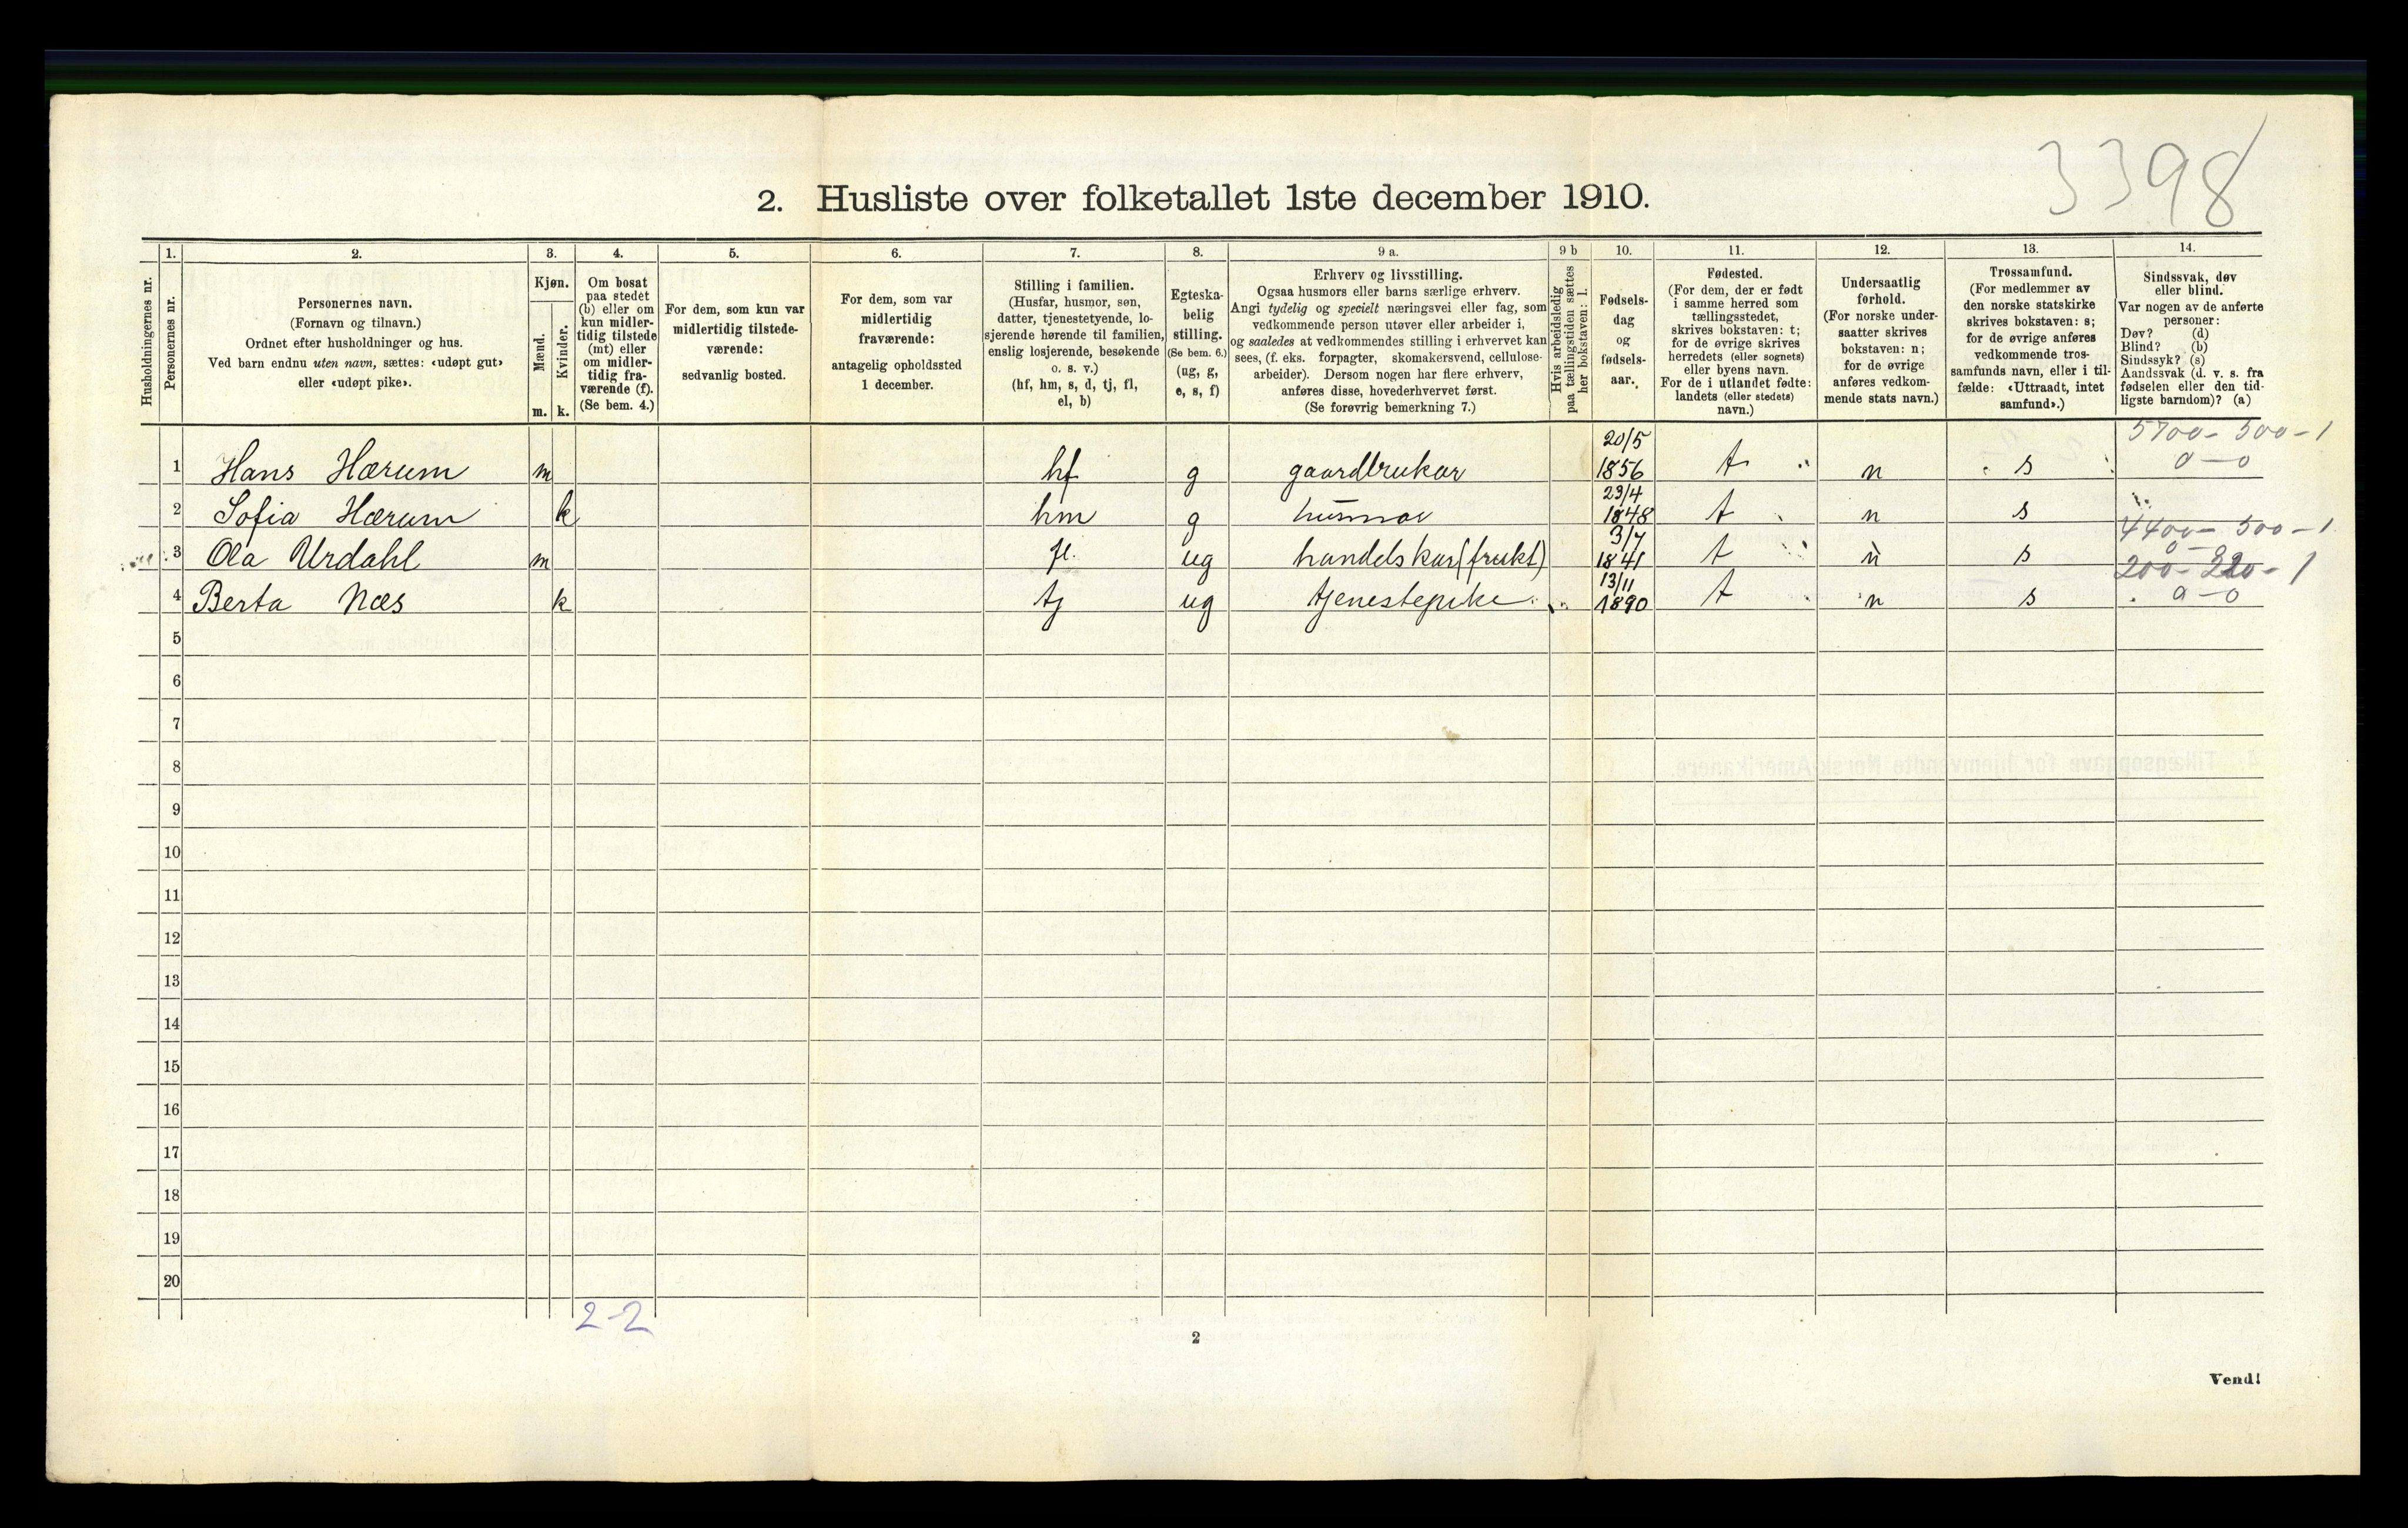 3398
2. Husliste over folketallet 1ste december 1910.
Husholdningernes nr.
1.
Personernes nr.
2.
Personernes navn.
(Fornavn og tilnavn.)
Ordnet efter husholdninger og hus.
Ved barn endnu uten navn, sættes: «udøpt gut»
eller «udøpt pike».
3.
Kjøn.
Mænd.
Kvinder.
m. k.
4.
Om bosat
paa stedet
(b) eller om
kun midler-
tidig tilstede
(mt) eller
om midler-
tidig fra-
værende (f).
(Se bem. 4.)
5.
For dem, som kun var
midlertidig tilstede-
værende:
sedvanlig bosted.
6.
For dem, som var
midlertidig
fraværende:
antagelig opholdssted
1 december.
7.
Stilling i familien.
(Husfar, husmor, søn,
datter, tjenestetyende, lo-
sjerende hørende til familien,
enslig losjerende, besøkende
o. s. v.)
(hf, hm, s, d, tj, fl,
el, b)
8.
Egteska-
belig
stilling.
(Se bem. 6.)
(ug, g,
e, s, f)
9 a.
Erhverv og livsstilling.
Ogsaa husmors eller barns særlige erhverv.
Angi tydelig og specielt næringsvei eller fag, som
vedkommende person utøver eller arbeider i,
og saaledes at vedkommendes stilling i erhvervet kan
sees, (f. eks. forpagter, skomakersvend, cellulose-
arbeider). Dersom nogen har flere erhverv,
anføres disse, hovederhvervet først.
(Se forøvrig bemerkning 7.)
9 b
Hvis arbeidsledig
paa tællingstiden sættes
her bokstaven: l.
10.
Fødsels-
dag
og
fødsels-
aar.
11.
Fødested.
(For dem, der er født
i samme herred som
tællingsstedet,
skrives bokstaven: t;
for de øvrige skrives
herredets (eller sognets)
eller byens navn.
For de i utlandet fødte:
landets (eller stedets)
navn.)
12.
Undersaatlig
forhold.
(For norske under-
saatter skrives
bokstaven: n;
for de øvrige
anføres vedkom-
mende stats navn.)
13.
Trossamfund.
(For medlemmer av
den norske statskirke
skrives bokstaven: s;
for de øvrige anføres
vedkommende tros-
samfunds navn, eller i til-
fælde: «Uttraadt, intet
samfund».)
14.
Sindssvak, døv
eller blind.
Var nogen av de anførte
personer:
Døv? (d)
Blind? (b)
Sindssyk? (s)
Aandssvak (d. v. s. fra
fødselen eller den tid-
ligste barndom)? (a)
1 Hans Hærum m hf g gaardbruker 20/5 1856 t n s 5700 - 500 - 1
0 - 0
2 Sofia Hærum k hm g husmor 23/4 1848 t n s
3 Ola Urdahl m fl. ug handelskar (frukt) 3/7 1841 t n s 4400 - 500 - 1
4 Berta Næs k tj ug tjenestepike 13/11 1890 t n s
0 - 0
5
6
7
8
9
10
11
12
13
14
15
16
17
18
19
20
2-2
2
Vend!